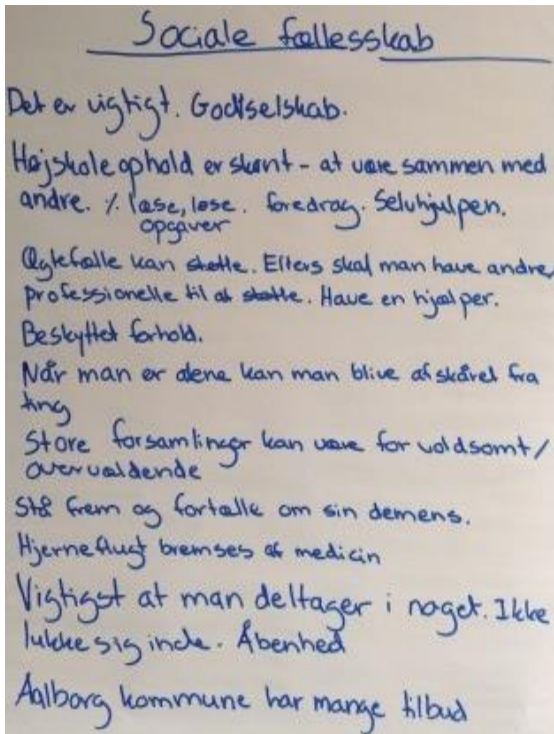 Sociale fællesskab
Det er vigtigt. Godt selskab.
Højskoleophold er skønt - at være sammen med
andre. % læse, løse. foredrag. Selvhjulpen.
opgaver
Ægtefælle kan støtte. Ellers skal man have andre,
professionelle til at støtte. Have en hjælper.
Beskyttet forhold.
Når man er alene kan man blive afskåret fra
ting
Store forsamlinger kan være for voldsomt/
overvældende
Stå frem og fortælle om sin demens.
Hjerneflugt bremses af medicin
Vigtigst at man deltager i noget. Ikke
lukke sig inde. Åbenhed
Aalborg kommune har mange tilbud